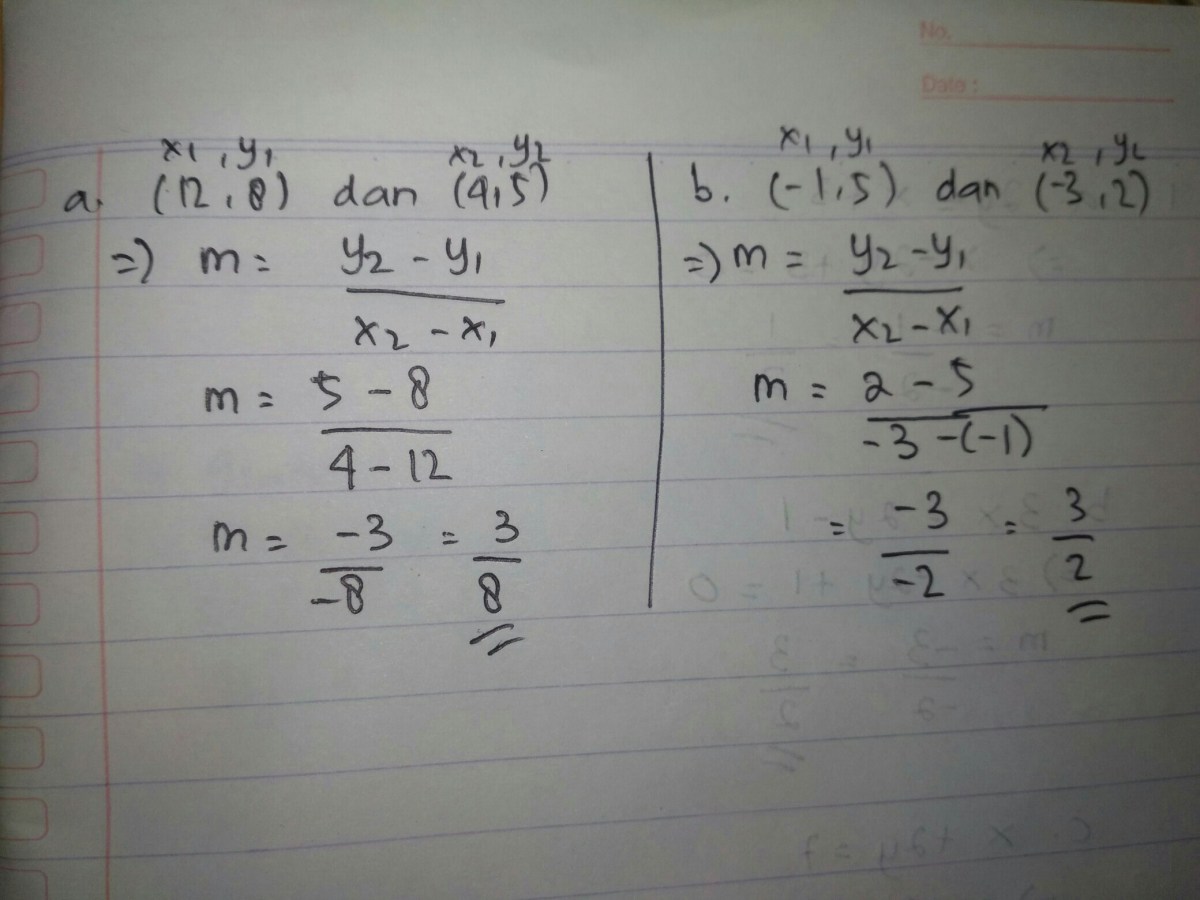 No.
Date :
x1 , y1 x2 , y2
a. (12 , 8) dan (4,5)
=) m = y2 - y1
x2 - x1
m = 5 - 8
4 - 12
m = -3 = 3
-8 8
x1 , y1 x2 , y2
b. (-1,5) dan (-3,2)
=) m = y2 - y1
x2 - x1
m = 2 - 5
-3 -(-1)
= -3 = 3
-2 2